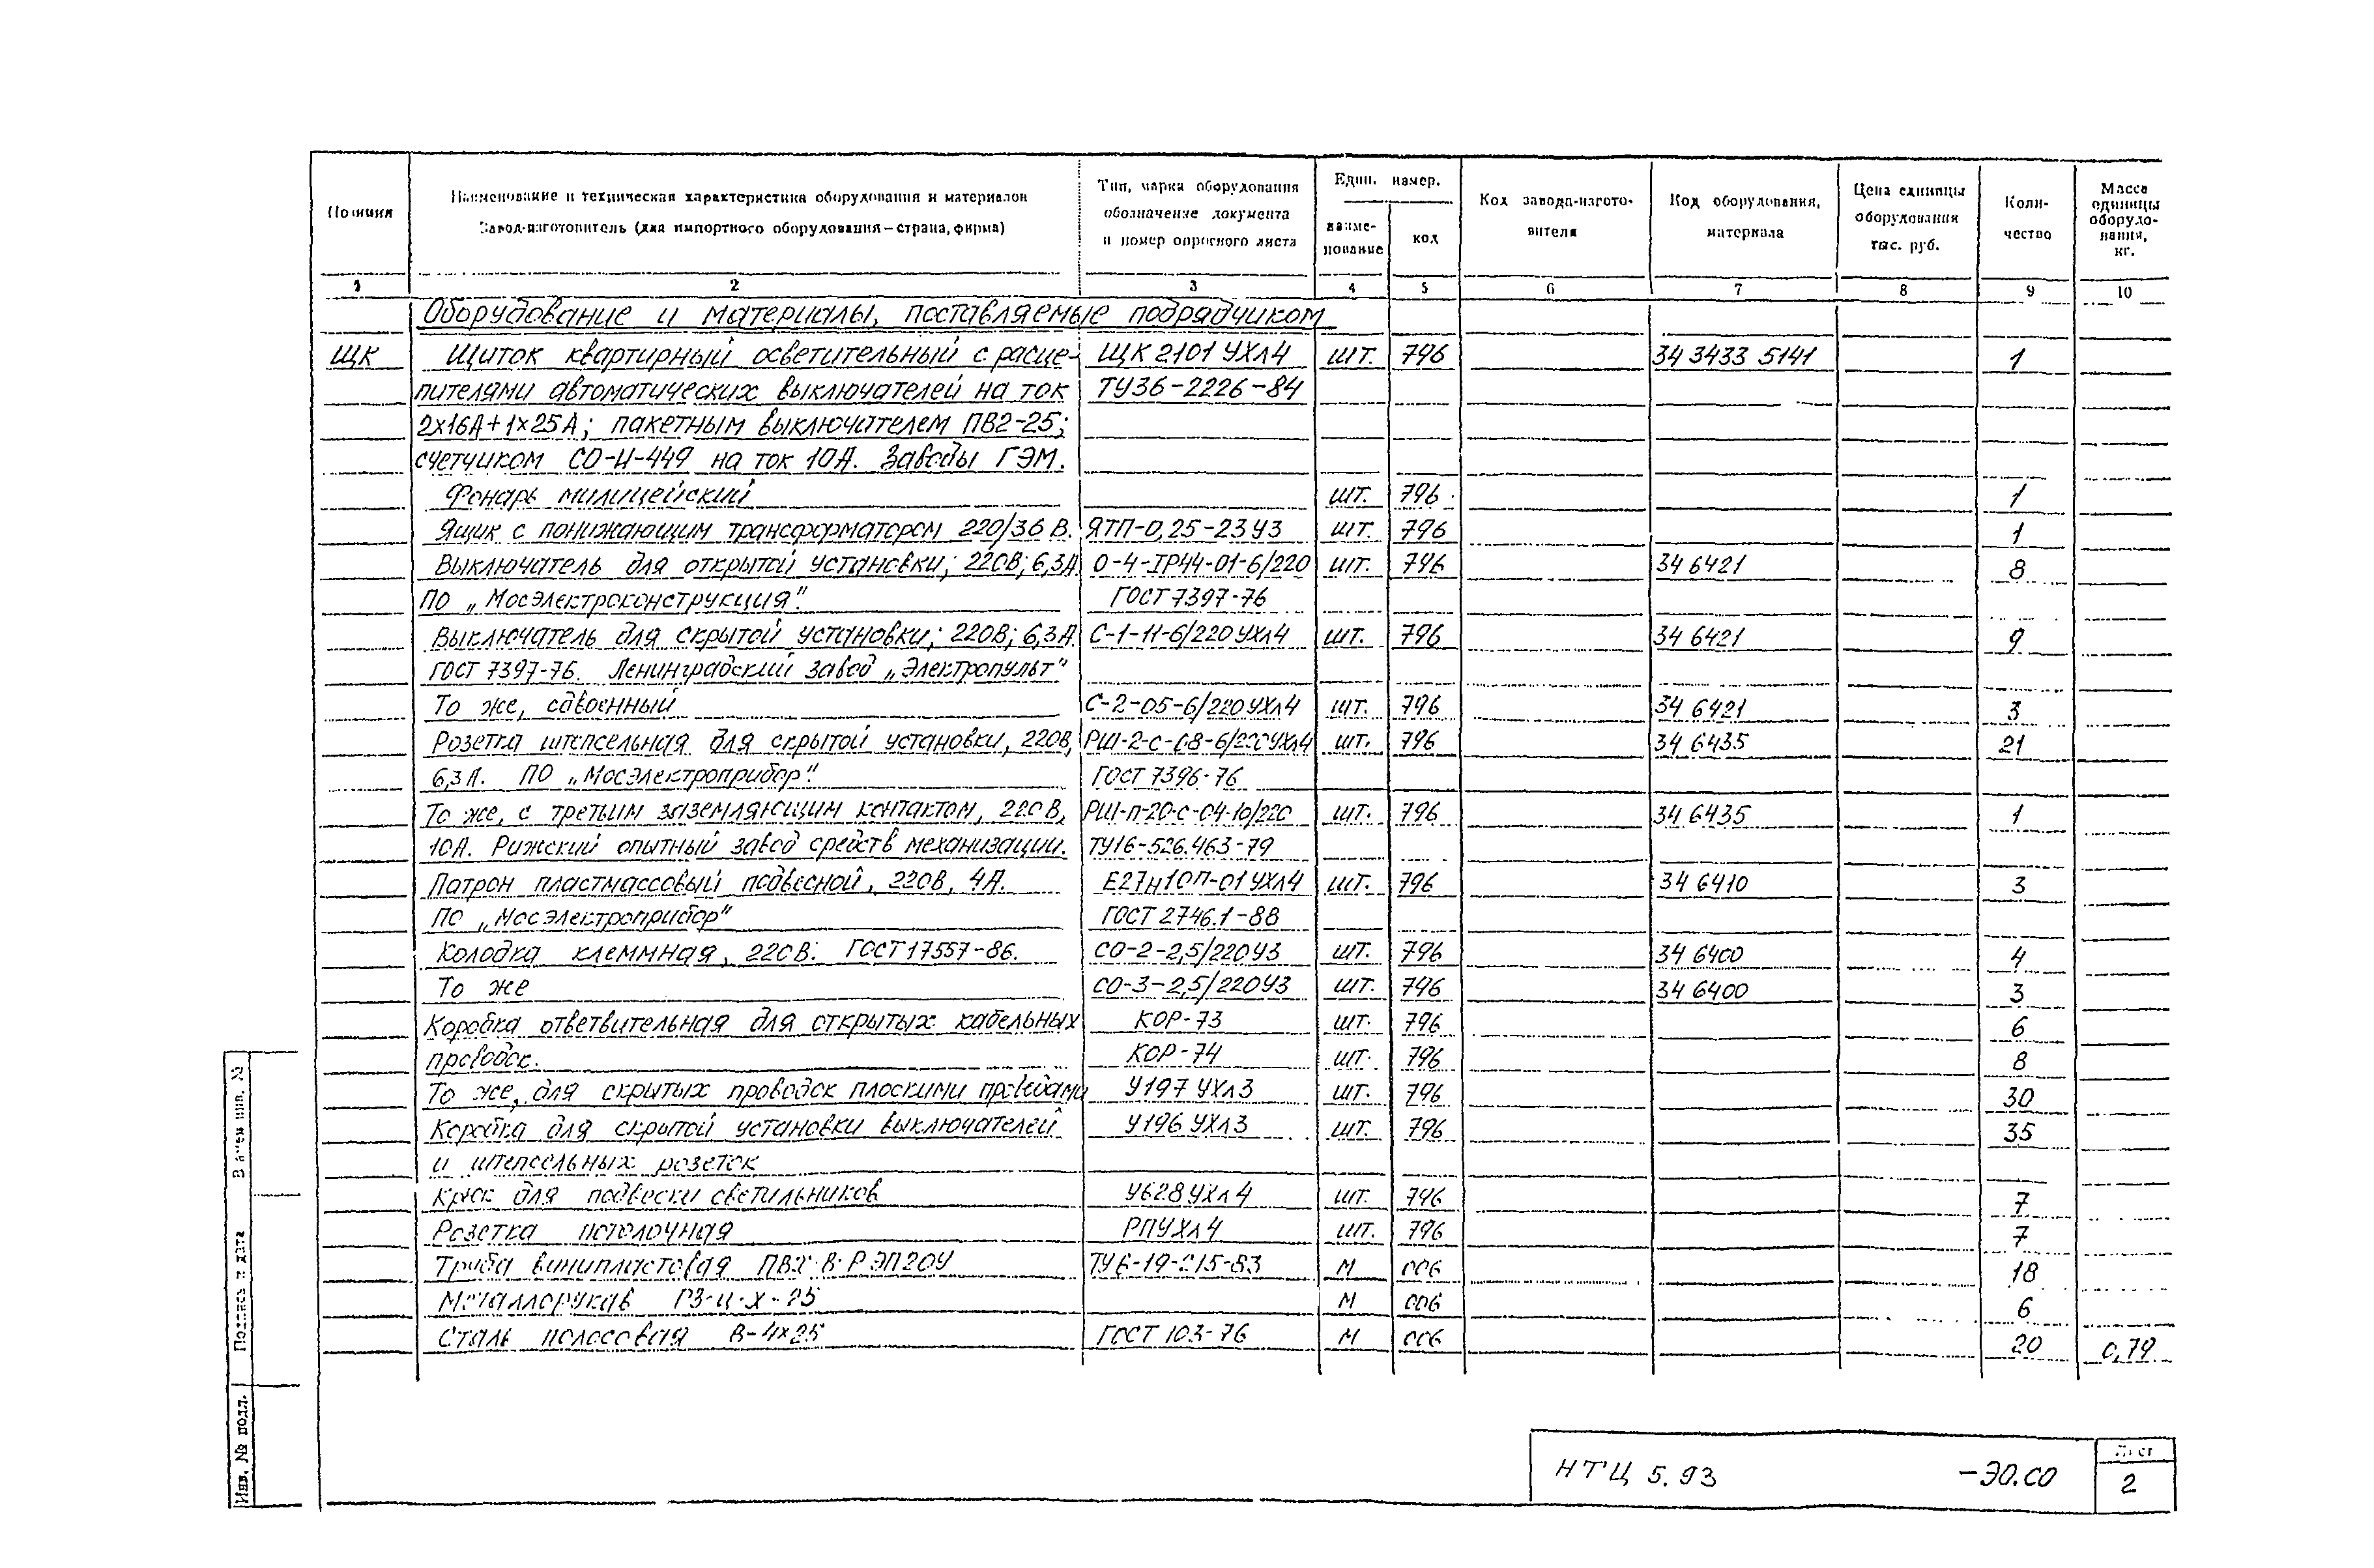 Позиция
Наименование и техническая характеристика оборудования и материалов
Завод-изготовитель (для импортного оборудования – страна, фирма)
Тип, марка оборудования
обозначение документа
и номер опросного листа
Един. измер.
наиме-
нование
код
Код завода-изгото-
вителя
Код оборудования,
материала
Цена единицы
оборудования
тыс. руб.
Коли-
чество
Масса
единицы
оборудо-
вания,
кг.
1 2 3 4 5 6 7 8 9 10
Оборудование и материалы, поставляемые подрядчиком
ЩК Щиток квартирный осветительный с расце- ЩК 2101 УХЛ4 шт. 796 34 3433 5141 1
пителями автоматических выключателей на ток ТУ36-2226-84
2х16А+1х25А; пакетным выключателем ПВ2-25;
счетчиком СО-И-449 на ток 10А. Заводы ГЭМ.
Фонарь милицейский шт. 796 1
Ящик с понижающим трансформатором 220/36 В. ЯТП-0,25-23У3 шт. 796 1
Выключатель для открытой установки; 220В; 6,3А. О-4-IP44-01-6/220 шт. 796 34 6421 8
ПО „Мосэлектроконструкция". ГОСТ 7397-76
Выключатель для скрытой установки; 220В; 6,3А. С-1-11-6/220 УХЛ4 шт. 796 34 6421 9
ГОСТ 7397-76. Ленинградский завод „Электропульт"
То же, сдвоенный С-2-05-6/220 УХЛ4 шт. 796 34 6421 3
Розетка штепсельная для скрытой установки, 220В, РШ-2-С-08-6/220УХЛ4 шт. 796 34 6435 21
6,3А. ПО „Мосэлектроприбор". ГОСТ 7396-76
То же, с третьим заземляющим контактом, 220В, РШ-п-20-С-04-10/220 шт. 796 34 6435 1
10А. Рижский опытный завод средств механизации. ТУ16-526.463-79
Патрон пластмассовый подвесной, 220В, 4А. Е27Н10П-01 УХЛ4 шт. 796 34 6410 3
ПО „Мосэлектроприбор" ГОСТ 2746.1-88
Колодка клеммная, 220В. ГОСТ 17557-86. СО-2-2,5/220У3 шт. 796 34 6400 4
То же СО-3-2,5/220У3 шт. 796 34 6400 3
Коробка ответвительная для открытых кабельных КОР-73 шт. 796 6
проводок. КОР-74 шт. 796 8
То же, для скрытых проводок плоскими проводами У197 УХЛ3 шт. 796 30
Коробка для скрытой установки выключателей У196 УХЛ3 шт. 796 35
и штепсельных розеток
Крюк для подвески светильников У628УХЛ4 шт. 796 7
Розетка потолочная РПУХЛ4 шт. 796 7
Труба винипластовая ПВХ-В-Р ЭП20У ТУ6-19-215-83 м 006 18
Металлорукав РЗ-Ц-Х-25 м 006 6
Сталь полосовая В-4х25 ГОСТ 103-76 м 006 20 0,79
Взамен инв. №
Подпись и дата
Инв. № подл.
НТЦ 5.93 -ЭО.СО
Лист
2